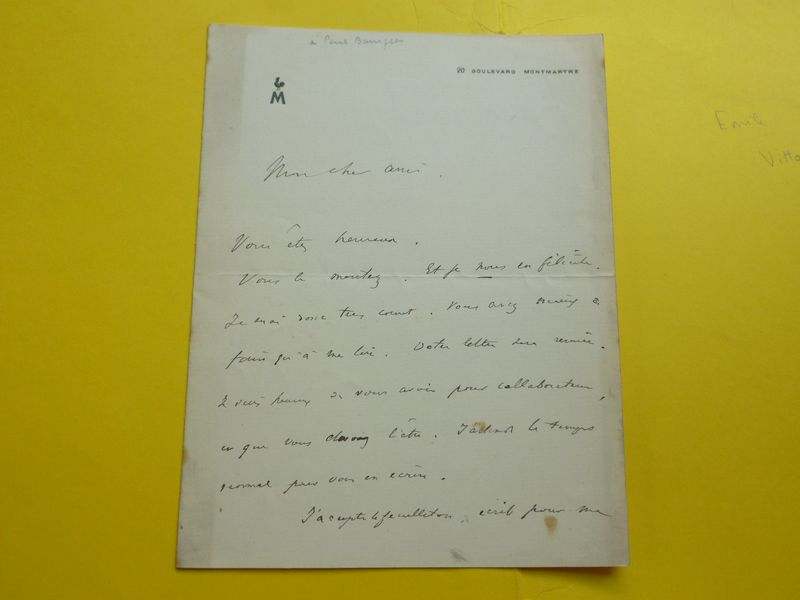 à Paul Bourget
20 BOULEVARD MONTMARTRE
M
Emile
Mon cher ami.
Vous êtes heureux.
Vous le montez. Et je nous en félicite.
Je serai donc très court. Vous avez mieux à
faire qu'à me lire. Votre lettre sera
Je suis heureux de vous avoir pour collaborateur,
ce que vous deviez l'être. J'attends le temps
normal pour vous en écrire.
J'accepte le feuilleton, écrit pour me